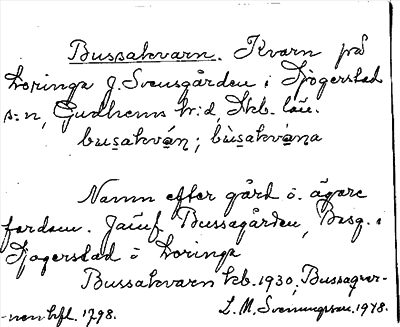 Bussakvarn. Kvarn på
Loringa J. Svensgården i Sjögerstad
s:n, Gudhems hr:d, Skb. län.
busakván; bùsakvána
Namn efter gård o. ägare
fordom. Jämf. Bussagården, Besg. i
Sjogerstad o Loringa
Bussakvarn kb. 1930, Bussaqvar-
-nen hfl. 1798.
L. M. Svenungsson. 1978.